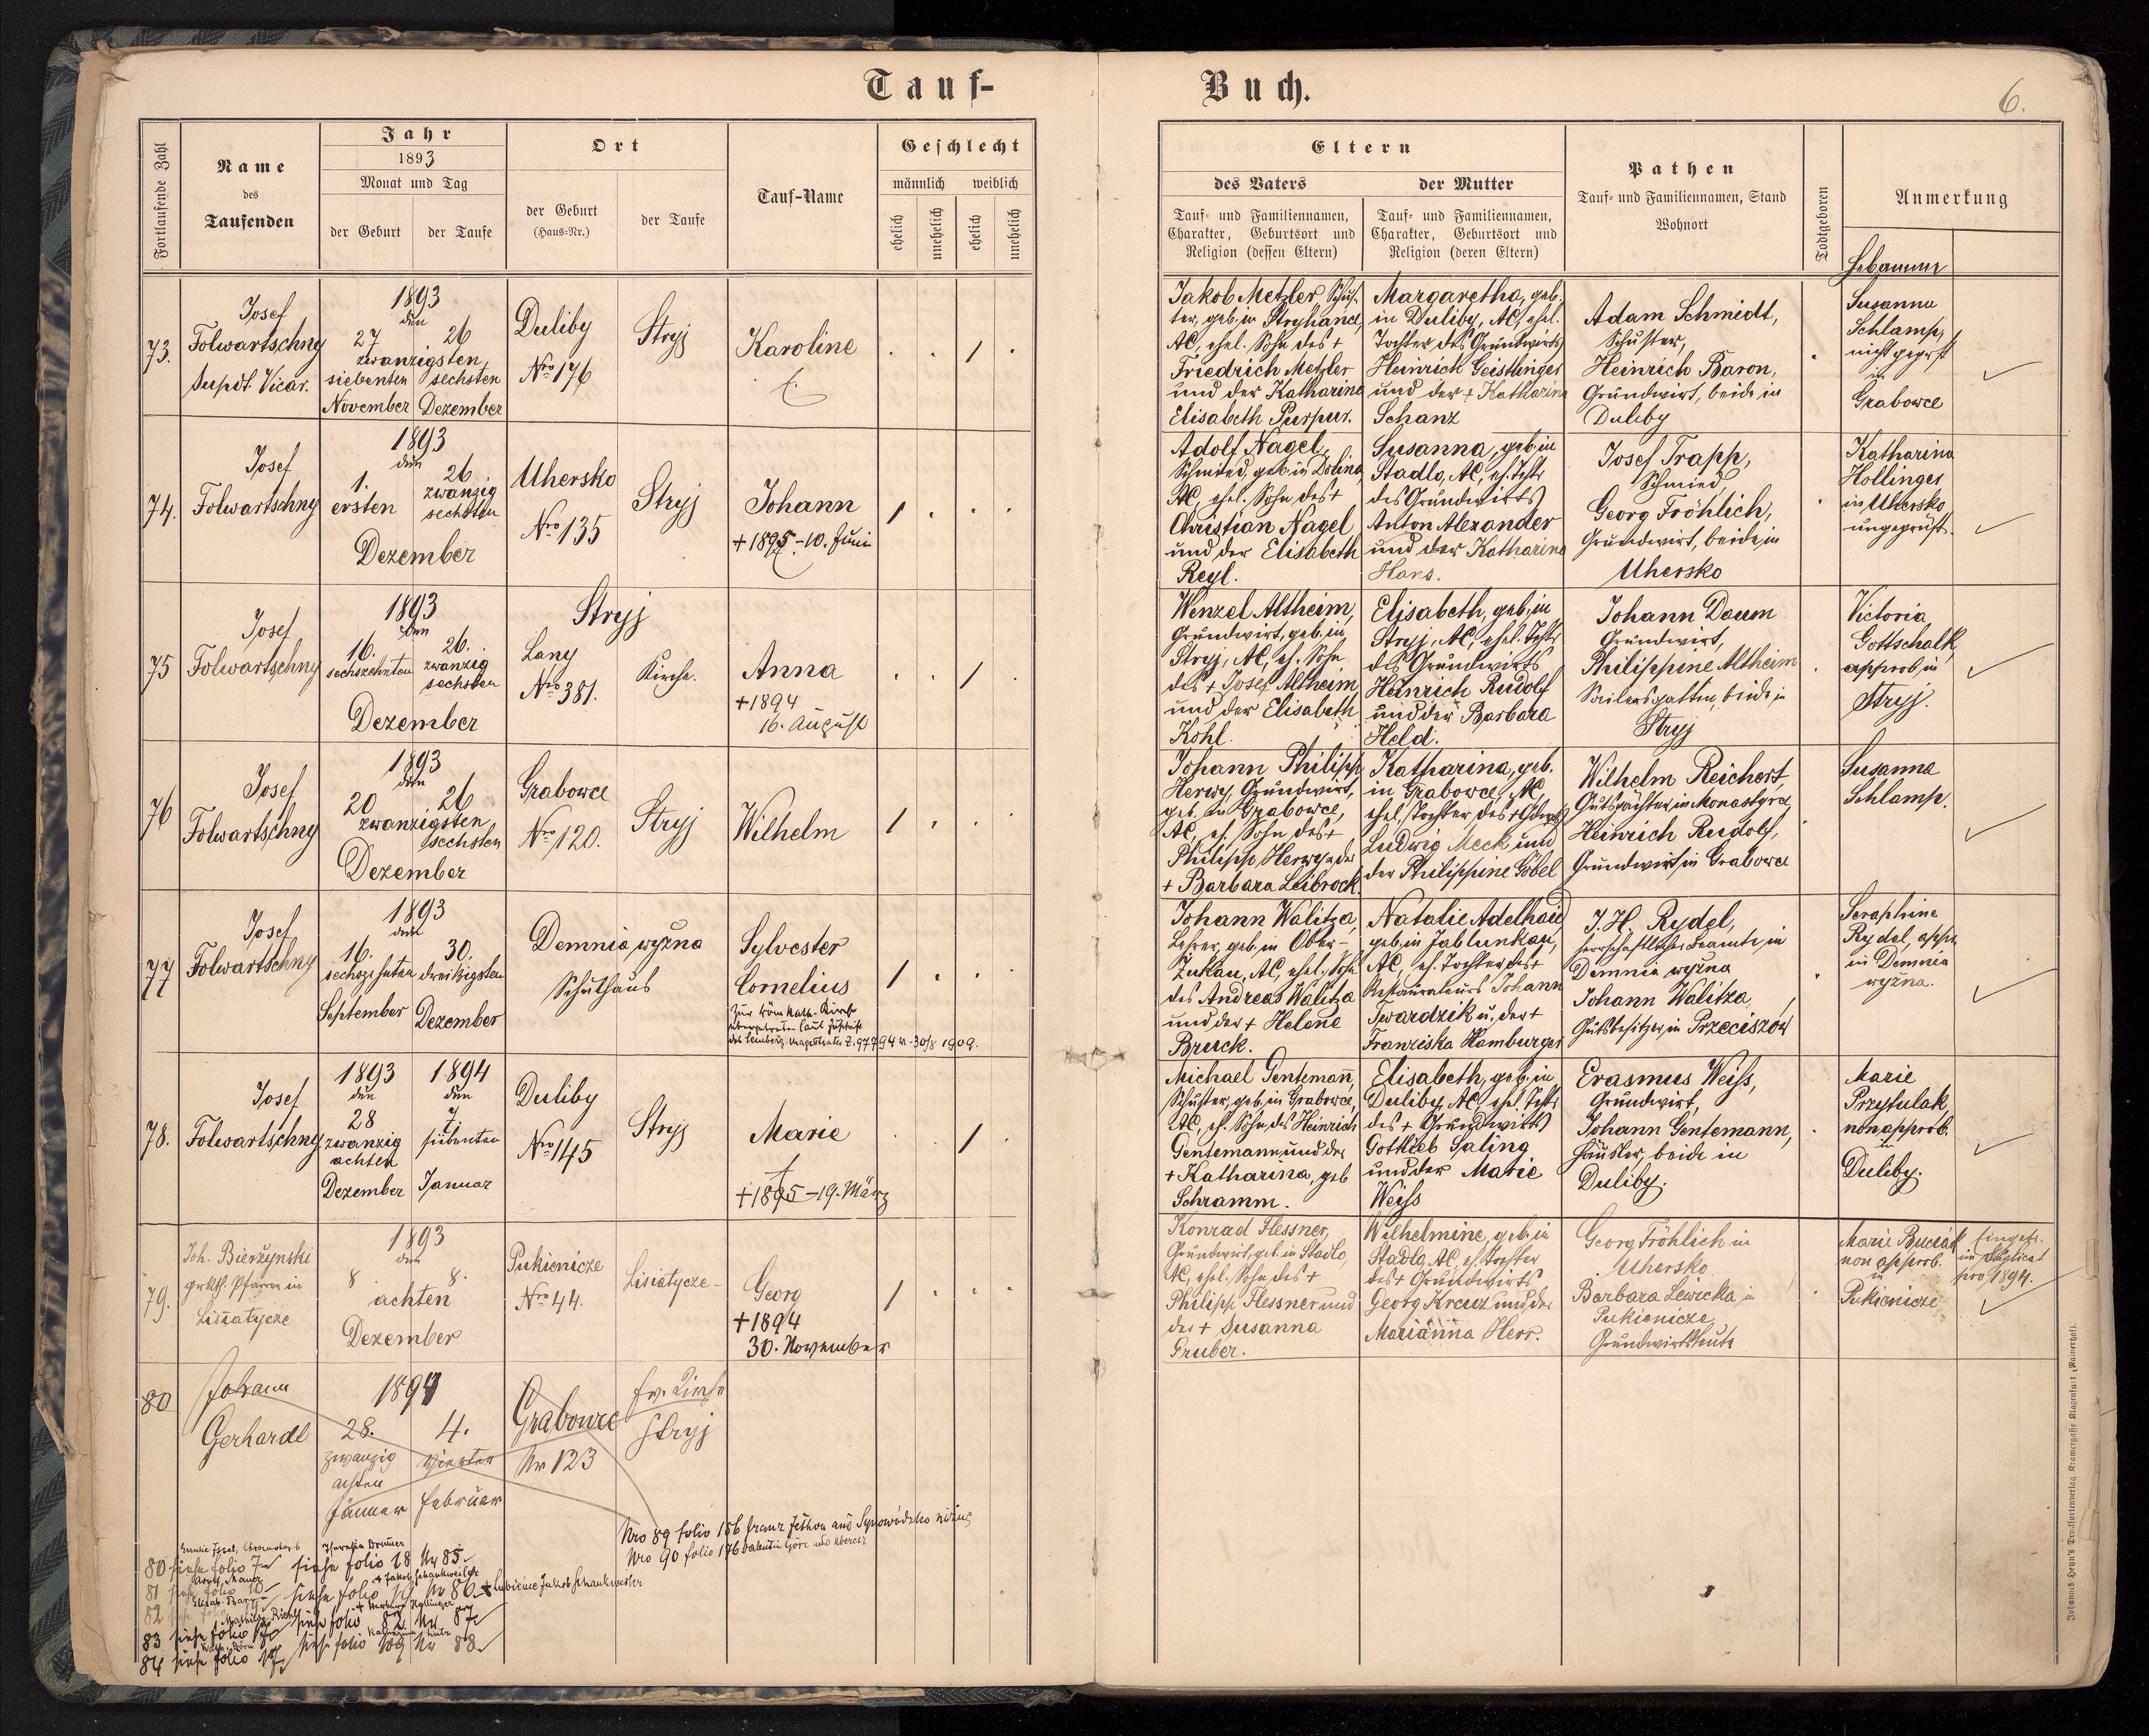 Tauf-
Buch.
6.
Fortlaufende Zahl
Name
des
Taufenden
Jahr
1893
Monat und Tag
der Geburt
der Taufe
Ort
der Geburt
(Haus-Nr.)
der Taufe
Tauf-Name
Geschlecht
männlich weiblich
ehelich
unehelich
ehelich
unehelich
Eltern
des Vaters
Tauf- und Familiennamen,
Charakter, Geburtsort und
Religion (dessen Eltern)
der Mutter
Tauf- und Familiennamen,
Charakter, Geburtsort und
Religion (deren Eltern)
Pathen
Tauf- und Familiennamen, Stand
Wohnort
Todtgeboren
Anmerkung
Hebamme
73.
Josef
Folwartschny
Supdt. Vicar.
1893
den
27 26
zwanzigsten
siebenten sechsten
November Dezember
Duliby
Nro 176
Stryj
Karoline
Jakob Metzler, Schus-
ter, geb. in Stryhance,
AC, ehel. Sohn des +
Friedrich Metzler
und der Katharina
Elisabeth Purpur.
Margaretha, geb.
in Duliby, AC, ehel.
Tochter des Grundwirts
Heinrich Geistlinger
und der + Katharina
Schanz
Adam Schmidt,
Schuster,
Heinrich Baron,
Grundwirt, beide in
Duliby
Susanna
Schlamp,
nicht geprft
in
Grabowce
74.
Josef
Folwartschny
1893
den
1. 26
ersten zwanzig
sechsten
Dezember
Uhersko
Nro 135
Stryj
Johann
+ 1895 - 10. Juni
Adolf Nagel,
Schmied, geb. in Dolina,
AC, ehel. Sohn des +
Christian Nagel
und der Elisabeth
Regl.
Susanna, geb. in
Stadlo, AC, eh. Tcht.
des Grundwirts
Anton Alexander
und der Katharina
Hans.
Josef Trapp,
Schmied
Georg Fröhlich,
Grundwirt, beide in
Uhersko
Katharina
Hollinger
in Uhersko
ungeprüft.
75
Josef
Folwartschny
1893
den
16. 26.
sechszehnten zwanzig
sechsten
Dezember
Stryj
Lany
Nro 381.
Kirche.
Anna
+ 1894
16. August
Wenzel Altheim,
Grundwirt, geb. in
Stryj, AC, eh. Sohn
des + Josef Altheim
und der Elisabeth
Kohl.
Elisabeth, geb. in
Stryj, AC, ehel. Tcht.
des Grundwirts
Heinrich Rudolf
und der Barbara
Held.
Johann Daum
Grundwirt,
Philippine Altheim
Seilersgattin, beide in
Stryj
Victoria
Gottschalk,
approb. in
Stryj.
76
Josef
Folwartschny
1893
den
20 26
zwanzigsten
sechsten
Dezember
Grabowce
Nro 120.
Stryj
Wilhelm
Johann Philipp
Herwy, Grundwirt,
geb. in Grabowce,
AC, eh. Sohn des +
Philipp Herwy u. der
+ Barbara Leibrock.
Katharina, geb.
in Grabowce, AC,
ehel. Tochter des + Gdwts
Ludwig Meck und
der Philippine Göbel
Wilhelm Reichert,
Gutspächter in Monastyrce
Heinrich Rudolf,
Grundwirt in Grabowce
Susanna
Schlamp.
77
Josef
Folwartschny
1893
den
16. 30.
sechszehnten dreißigsten
September Dezember
Demnia wyżna
Schulhaus
Sylvester
Cornelius
Zur röm. kath. Kirche
übergetreten laut Zuschrift
des Lemberg. Magistrates Z. 97794 v. 30/8 1909.
Johann Walitza
Lehrer, geb. in Ober-
Zukau, AC, ehel. Sohn
des Andreas Walitza
und der + Helene
Bruck.
Natalie Adelhaid
geb. in Jablunkau,
AC, eh. Tochter des +
Restaurateurs Johann
Twardzik u. der +
Franziska Hamburger
J. H. Rydel,
herrschaftlicher Beamte, in
Demnia wyżna
Johann Walitza,
Gutsbesitzer in Przeciszów
Seraphine
Rydel, appr.
in Demnia
wyżna.
78.
Josef
Folwartschny
1893 1894
den den
28 7.
zwanzig siebenten
achten
Dezember Januar
Duliby
Nro 145
Stryj
Marie
+ 1895 - 19. März
Michael Gentemann,
Schuster, geb. in Grabowce,
AC, eh. Sohn des Heinrich
Gentemann und der
+ Katharina, geb
Schramm.
Elisabeth, geb. in
Duliby, AC, ehel. Tcht.
des + Grundwirts
Gottlieb Saling
und der Marie
Weiss
Erasmus Weiss,
Grundwirt,
Johann Gentemann,
Häusler, beide in
Duliby.
Marie
Przytulak
non approb.
in
Duliby.
79.
Joh. Bierżynski
gr. kth. Pfarrer in
Lisiatycze
1893
den
8 8.
achten
Dezember
Pukienicze
Nro 44.
Lisiatycze
Georg
+ 1894
30. November
Konrad Hessner,
Grundwirt, geb. in Stadlo,
AC, ehel. Sohn des +
Philipp Hessner und
der + Susanna
Gruber.
Wilhelmine, geb. in
Stadlo, AC, eh. Tochter
des + Grundwirts
Georg Kreuz und der
Marianna Herr.
Georg Fröhlich in
Uhersko
Barbara Lewicka in
Pukienicze
Grundwirtsleute
Marie Buciak
non approb.
in
Pukienicze
Eingetr.
im Duplicat
pro 1894.
80
Johann
Gerhardt
1894
28. 4.
zwanzig vierten
achten
Jänner Februar
Grabowce
Nr 123
ev. Kirche
Stryj
Nro 89 folio 156 Franz aus Synowódzko niżne
Nro 90 folio 176 Valentin
80 siehe folio 7 siehe folio 18 Nr 85
81 siehe folio 10 siehe folio 19 Nr 86
82 siehe folio siehe folio 82 Nr 87
83 siehe folio 17 siehe folio 109 Nr 88
84 siehe folio 17
Johannes Heyn's Druksortenverlag, Kramergasse Klagenfurt (Rainerhof).